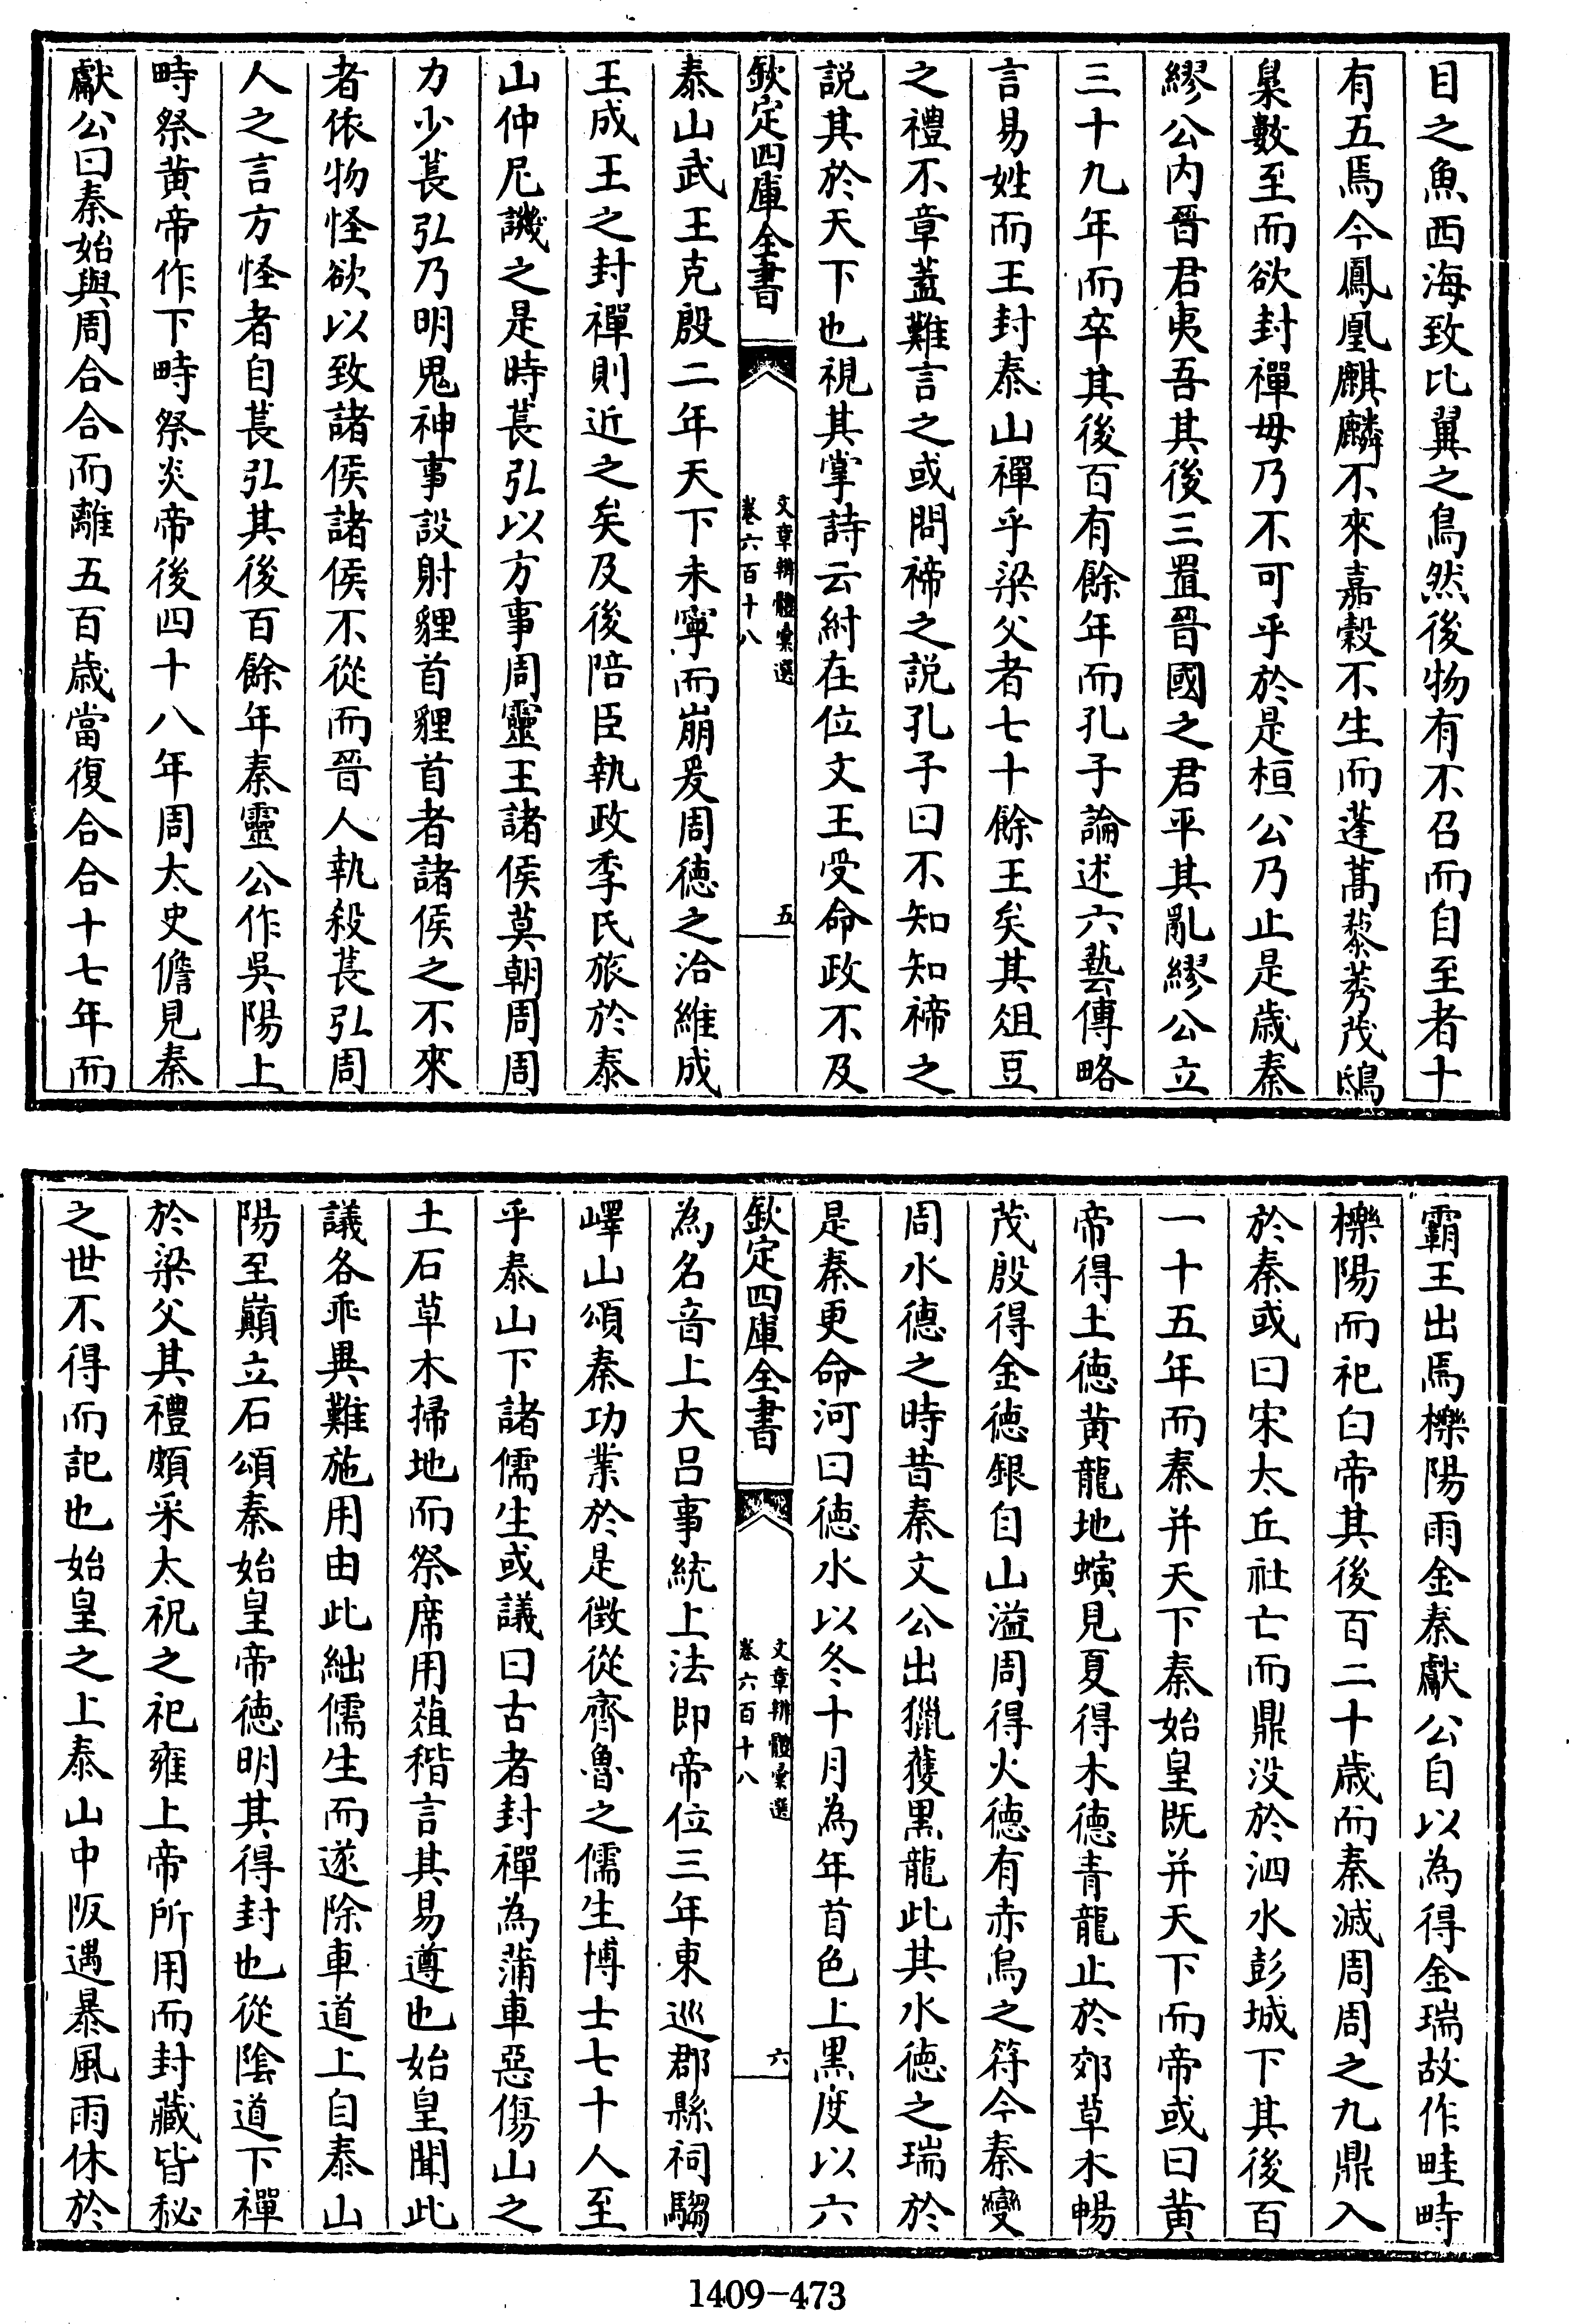 目之魚西海致比翼之鳥然後物有不召而自至者十
有五焉今鳳凰麒麟不來嘉穀不生而蓬蒿藜莠茂鴟
梟數至而欲封禪毋乃不可乎於是桓公乃止是歲秦
繆公內晉君夷吾其後三置晉國之君平其亂繆公立
三十九年而卒其後百有餘年而孔子論述六藝傳略
言易姓而王封泰山禪乎梁父者七十餘王矣其俎豆
之禮不章蓋難言之或問禘之説孔子曰不知知禘之
説其於天下也視其掌詩云紂在位文王受命政不及
欽定四庫全書
文章辨體彙選
卷六百十八
五
泰山武王克殷二年天下未寧而崩爰周徳之洽維成
王成王之封禪則近之矣及後陪臣執政季氏旅於泰
山仲尼譏之是時萇弘以方事周靈王諸侯莫朝周周
力少萇弘乃明鬼神事設射貍首貍首者諸侯之不來
者依物怪欲以致諸侯諸侯不從而晉人執殺萇弘周
人之言方怪者自萇弘其後百餘年秦靈公作吳陽上
畤祭黄帝作下畤祭炎帝後四十八年周太史儋見秦
獻公曰秦始與周合合而離五百歲當復合合十七年而
霸王出焉櫟陽雨金秦獻公自以為得金瑞故作畦畤
櫟陽而祀白帝其後百二十歲而秦滅周周之九鼎入
於秦或曰宋太丘社亡而鼎没於泗水彭城下其後百
一十五年而秦并天下秦始皇既并天下而帝或曰黄
帝得土徳黄龍地螾見夏得木徳青龍止於郊草木暢
茂殷得金徳銀自山溢周得火徳有赤烏之符今秦變
周水徳之時昔秦文公出獵獲黒龍此其水徳之瑞於
是秦更命河曰徳水以冬十月為年首色上黒度以六
欽定四庫全書
文章辨體彙選
卷六百十八
六
為名音上大吕事統上法即帝位三年東巡郡縣祠騶
嶧山頌秦功業於是徴從齊魯之儒生博士七十人至
乎泰山下諸儒生或議曰古者封禪為蒲車惡傷山之
土石草木掃地而祭席用葅稭言其易遵也始皇聞此
議各乖異難施用由此絀儒生而遂除車道上自泰山
陽至巔立石頌秦始皇帝徳明其得封也從陰道下禪
於梁父其禮頗采太祝之祀雍上帝所用而封藏皆秘
之世不得而記也始皇之上泰山中阪遇暴風雨休於
1409-473